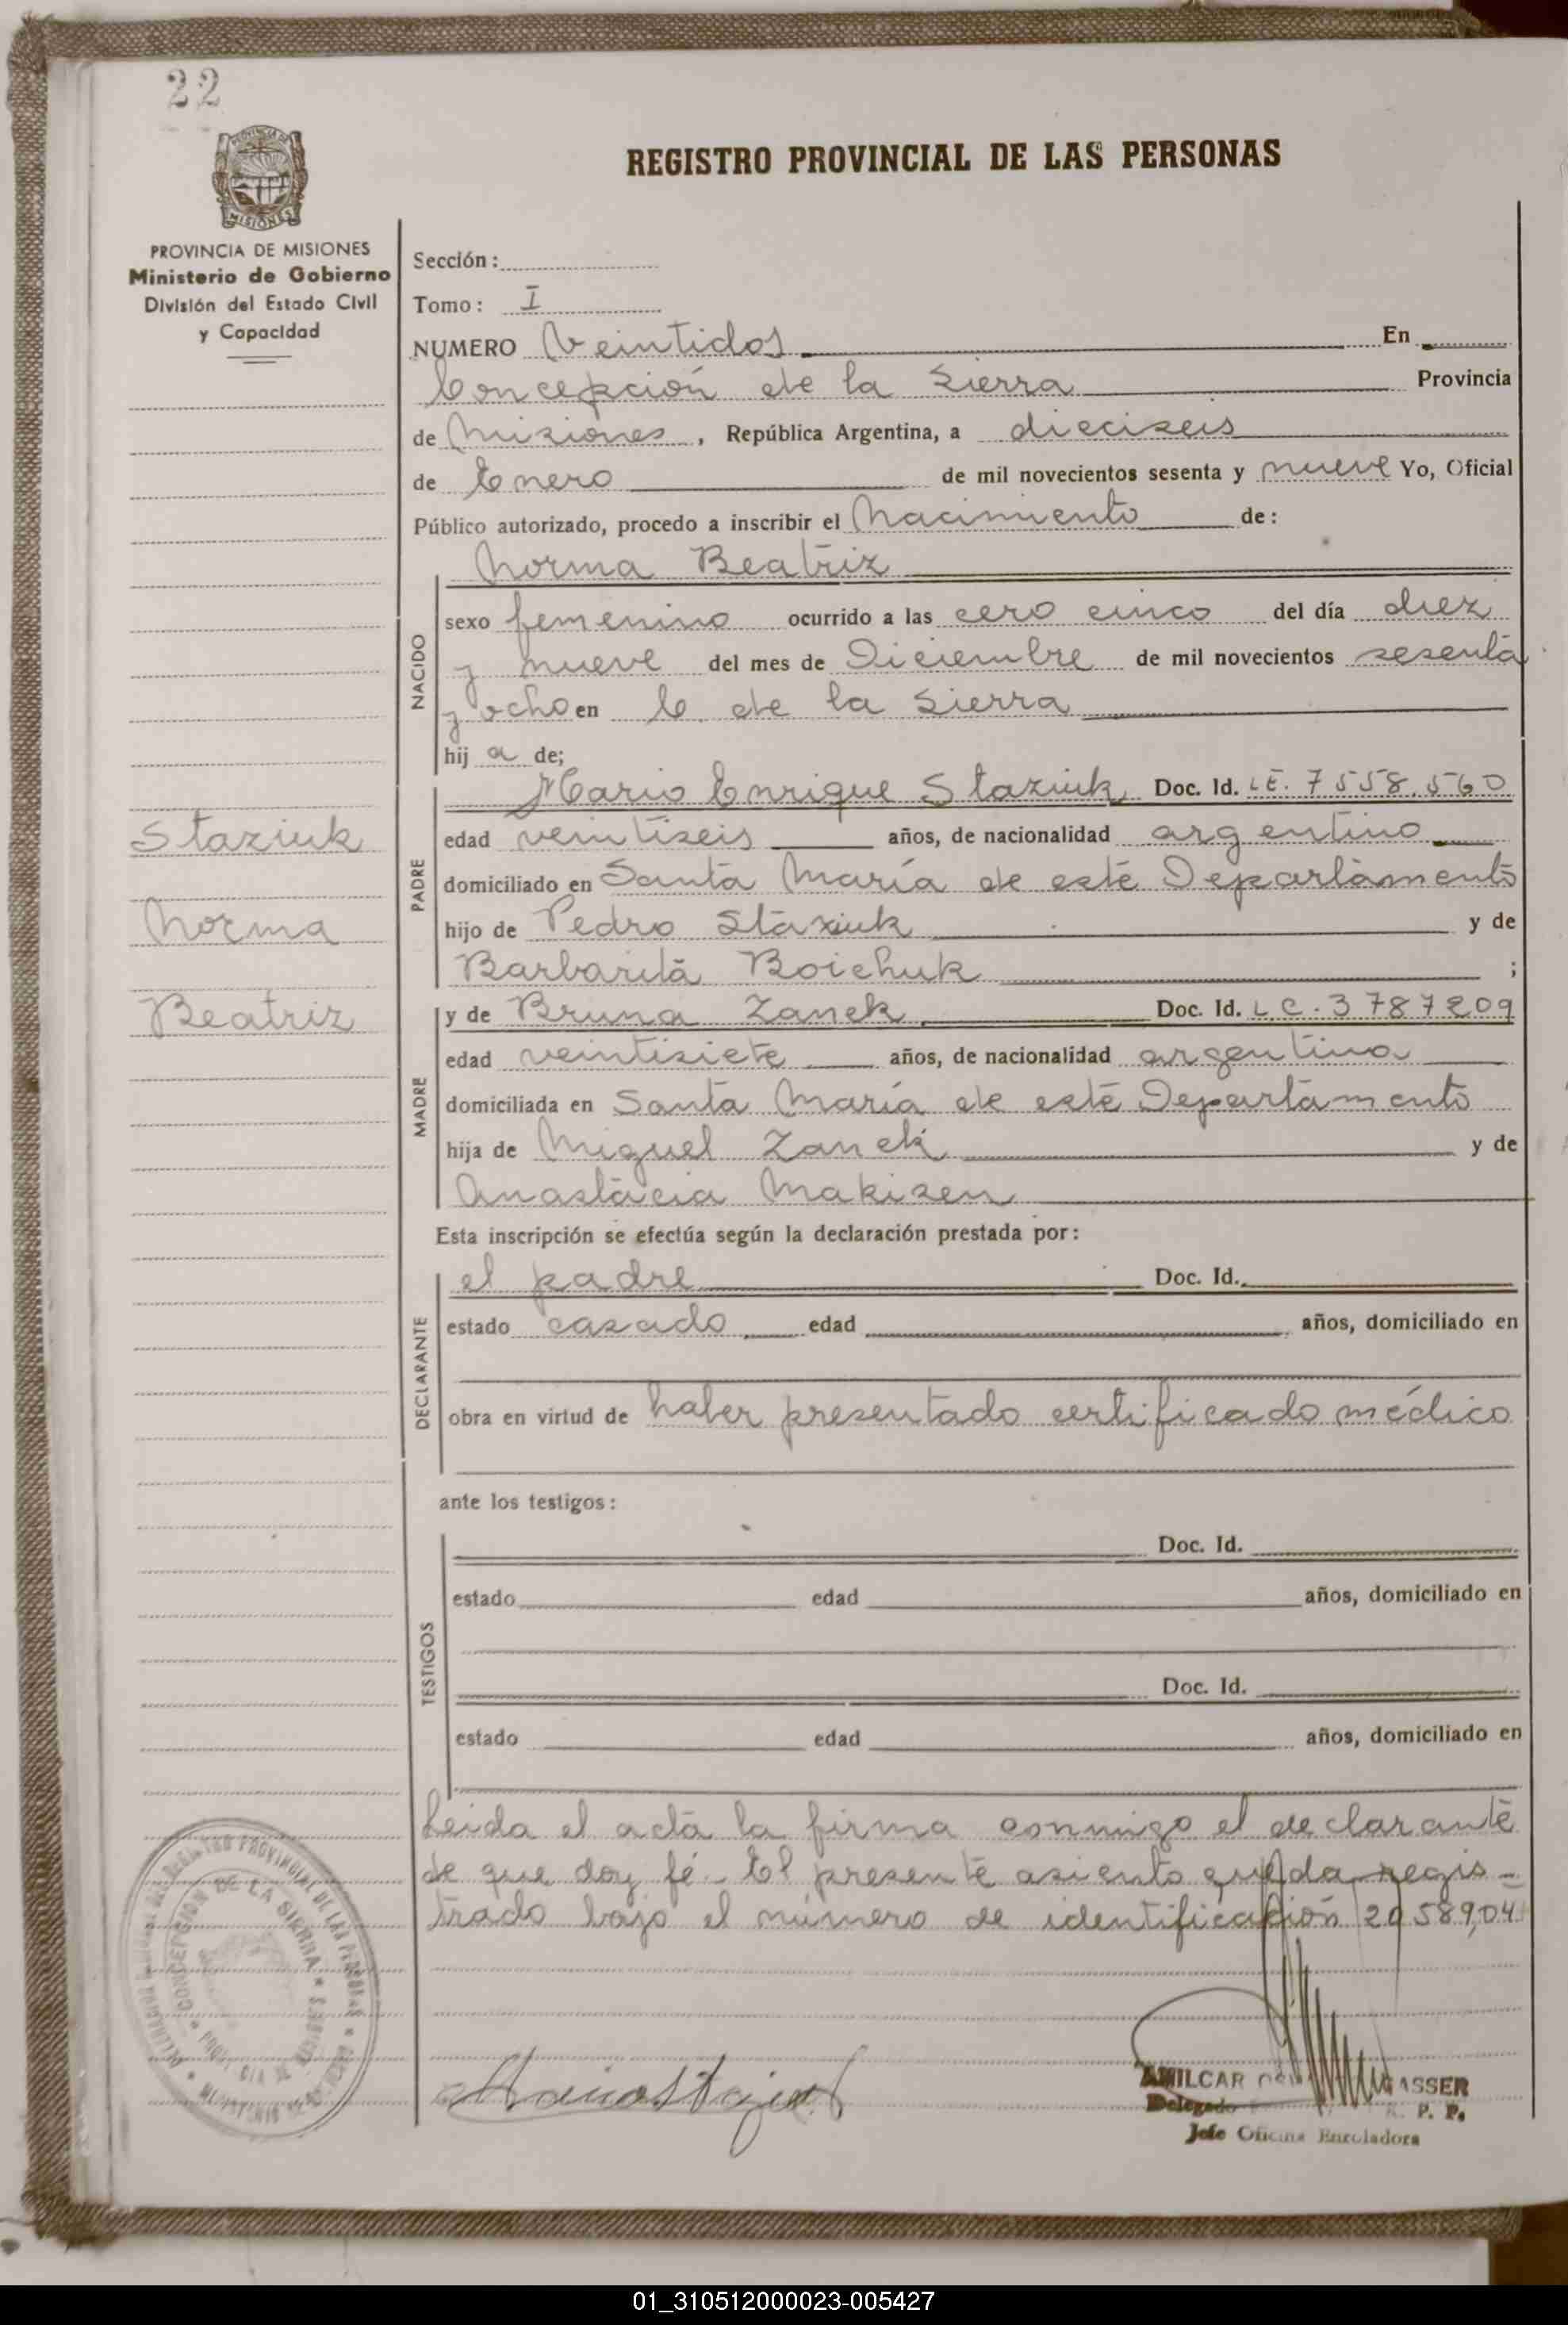 22
REGISTRO PROVINCIAL DE LAS PERSONAS
PROVINCIA DE MISIONES
Ministerio de Gobierno
División del Estado Civil
y Capacidad
Sección:
Tomo: I
NUMERO Veintidos En
Concepción de la Sierra Provincia
de Misiones, República Argentina, a dieciseis
de Enero de mil novecientos sesenta y nueve Yo, Oficial
Público autorizado, procedo a inscribir el Nacimiento de:
NACIDO
Norma Beatriz
sexo femenino ocurrido a las cero cinco del día diez
y nueve del mes de Diciembre de mil novecientos sesenta
y ocho en C. de la Sierra
hij a de;
PADRE
Mario Enrique Staziuk Doc. Id. LE. 7558.560
edad veintiseis años, de nacionalidad argentino
domiciliado en Santa María de este Departamento
hijo de Pedro Staziuk y de
Barbarita Boichuk ;
Staziuk
Norma
Beatriz
MADRE
y de Bruna Zanek Doc. Id. L.C. 3787209
edad veintisiete años, de nacionalidad argentina
domiciliada en Santa María de este Departamento
hija de Miguel Zanek y de
Anastacia Makisen
Esta inscripción se efectúa según la declaración prestada por:
DECLARANTE
el padre Doc. Id.
estado casado edad años, domiciliado en
obra en virtud de haber presentado certificado médico
ante los testigos:
TESTIGOS
Doc. Id.
estado edad años, domiciliado en
Doc. Id.
estado edad años, domiciliado en
Leida el acta la firma conmigo el declarante
de que doy fé. El presente asiento queda regis-
trado bajo el número de identificación 20.589,04
PROVINCIAL DE LAS PERSONAS
CONCEPCION DE LA SIERRA
AMILCAR GASSER
Delegado R. P. P.
Jefe Oficina Enroladora
01_310512000023-005427